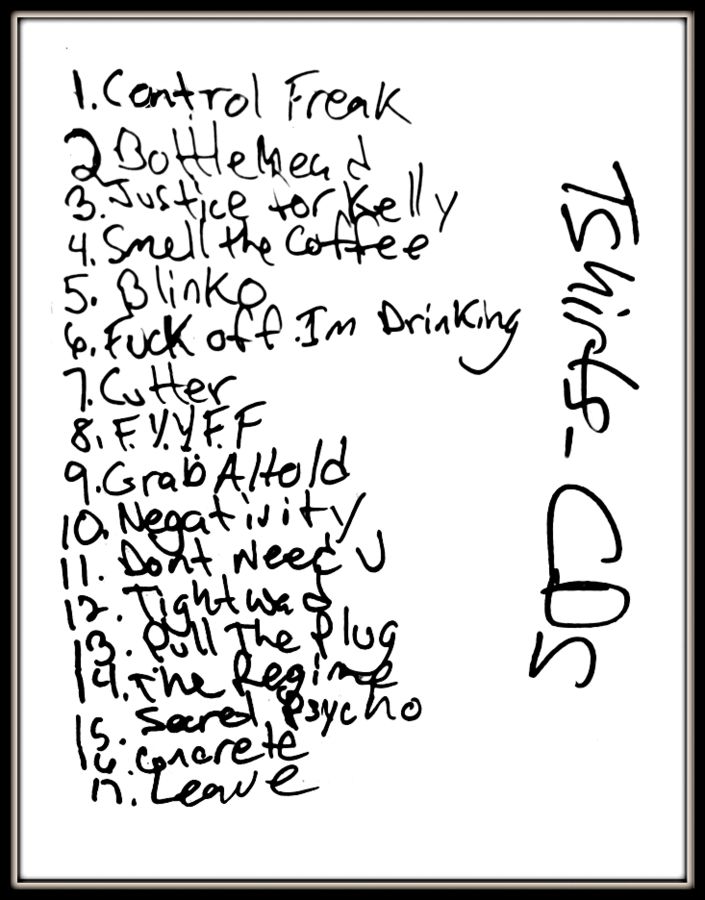 1. Control Freak
2 Bottlehead
3. Justice for Kelly
4. Smell the Coffee
5. Blinko
6. Fuck off. Im Drinking
7. Cutter
8. F.Y.Y.F.F
9. Grab A Hold
10. Negativity
11. Dont Need U
12. Tightwad
13. Pull The Plug
14. The Regime
15. Psycho
16. Concrete
17. Leave
Tshirts - CDS